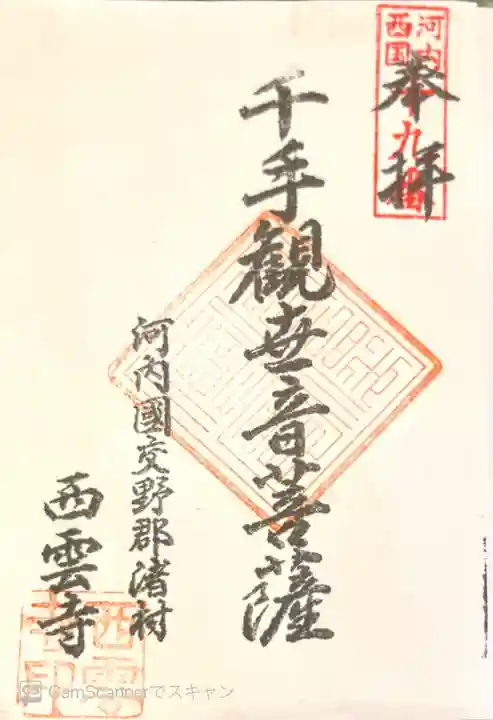 奉拝
河内
西国
十九番
千手観世音菩薩
河内國交野郡渚村
西雲寺
西雲
寺印
CamScannerでスキャン